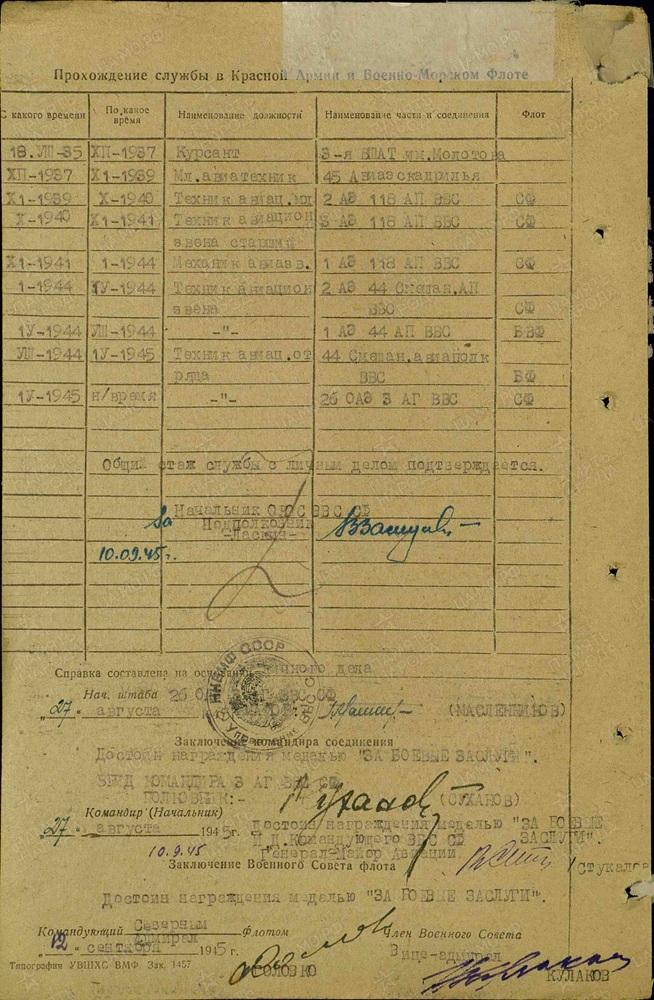 Прохождение службы в Красной Армии и Военно-Морском Флоте
С какого времени По какое время Наименование должности Наименование части и соединения Флот
18.УШ-35 ХП-1937 Курсант 3-я ВШАТ им.Молотова
ХП-1937 Х1-1939 Мл.авиатехник 45 Авиаэскадрилья
Х1-1939 Х-1940 Техник авиац. 2 АЭ 118 АП ВВС СФ
Х-1940 Х1-1941 Техник авиацион 3 АЭ 118 АП ВВС СФ
звена старший
Х1-1941 1-1944 Механик авиазв. 1 АЭ 118 АП ВВС СФ
1-1944 1У-1944 Техник авиацион 2 АЭ 44 Смешан.АП
звена ВВС СФ
1У-1944 УШ-1944 -"- 1 АЭ 44 АП ВВС БВФ
УШ-1944 1У-1945 Техник авиац.от 44 Смешан.авиаполк
ряда ВВС ВФ
1У-1945 н/время -"- 26 ОАЭ 3 АГ ВВС СФ
Общий стаж службы с личным делом подтверждается.
За Начальник ВВС СФ
Подполковник
10.09.45г.
Справка составлена на основании личного дела
Нач. штаба 26 ОАЭ 3 АГ ВВС СФ
„27" августа (МАСЛЕННИКОВ)
Заключение командира соединения
Достоин награждения медалью "ЗА БОЕВЫЕ ЗАСЛУГИ".
ВРИД КОМАНДИРА 3 АГ ВВС СФ
ПОЛКОВНИК:- (СУХАНОВ)
Командир (Начальник)
„27" августа 1945г.
Достоин награждения медалью "ЗА БОЕВЫЕ ЗАСЛУГИ".
И.Д.Командующего ВВС СФ
Генерал-Майор Авиации
10.9.45
Заключение Военного Совета флота
Достоин награждения медалью "ЗА БОЕВЫЕ ЗАСЛУГИ".
Командующий Северным флотом Член Военного Совета
Адмирал Вице-адмирал
„12" сентября 1945г.
ГОЛОВКО КУЛАКОВ
Типография УВШХС ВМФ. Зак. 1457